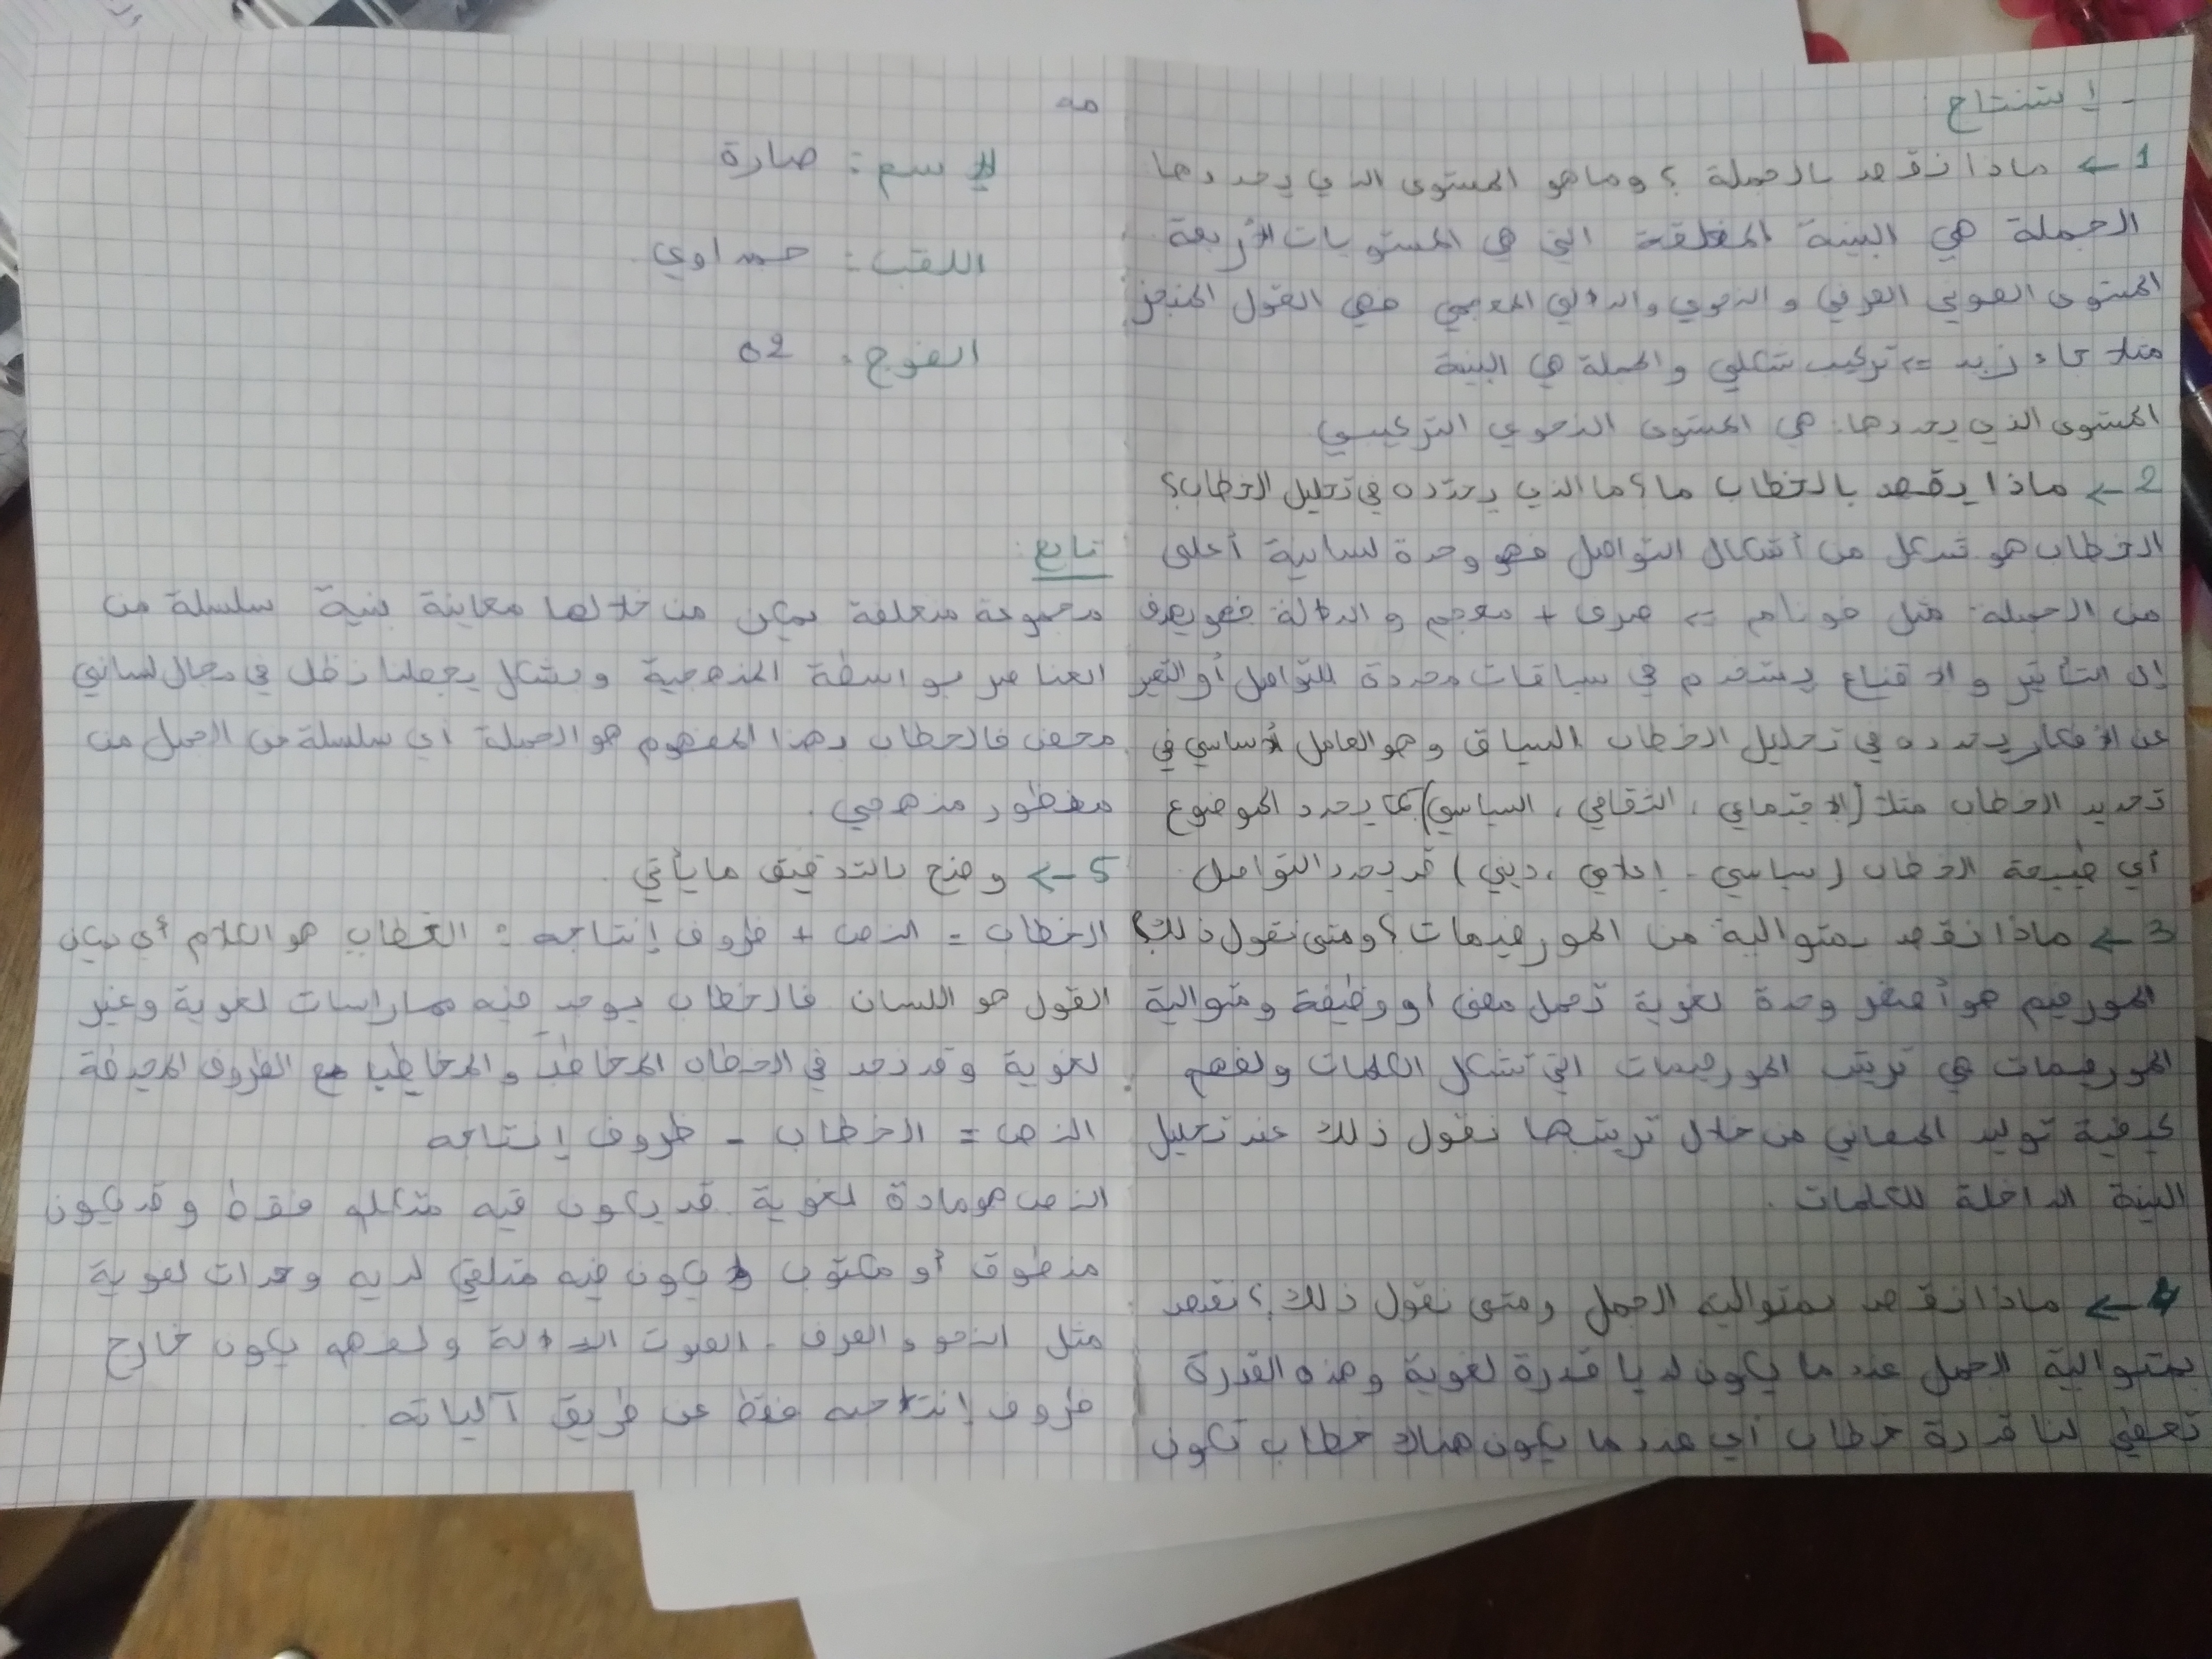 - إستنتاج:
1 ← ماذا نقصد بالجملة ؟ وماهو المستوى الذي يحددها
الجملة هي البنية المغلقة التي هي المستويات الأربعة
المستوى الصوتي الصرفي والنحوي والدلالي المعجمي فهي القول المنجز
مثلا جاء زيد => تركيب شكلي والجملة هي البنية
المستوى الذي يحددها: هي المستوى النحوي التركيبي
2 ← ماذا يقصد بالخطاب ما؟ ما الذي يحدده في تحليل الخطاب؟
الخطاب هو شكل من أشكال التواصل فهو وحدة لسانية أعلى
من الجملة مثل هو نام => صرف + معجم والدلالة فهو يهدف
إلى التأثير والاقناع يستخدم في سياقات محددة للتواصل أو التعبير
عن الأفكار يحدده في تحليل الخطاب السياق وهو العامل الأساسي في
تحديد الخطاب مثلا (الاجتماعي، الثقافي، السياسي) كما يحدد الموضوع
أي طبيعة الخطاب (سياسي - إعلامي، ديني) قد يحدد التواصل.
3 ← ماذا نقصد بمتوالية من المورفيمات؟ ومتى نقول ذلك؟
المورفيم هو أصغر وحدة لغوية تحمل معنى أو وظيفة ومتوالية
المورفيمات هي ترتيب المورفيمات التي تشكل الكلمات ولفهم
كيفية توليد المعاني من خلال ترتيبها نقول ذلك عند تحليل
البنية الداخلة للكلمات.
4 ← ماذا نقصد بمتوالية الجمل ومتى نقول ذلك؟ نقصد
بمتوالية الجمل عندما يكون لدينا قدرة لغوية وهذه القدرة
تعطي لنا قدرة خطاب أي عندما يكون هناك خطاب تكون
مه
الاسم: صارة
اللقب: حمداوي
الفوج: 02
تابع:
مجموعة منغلقة يمكن من خلالها معاينة بنية سلسلة من
العناصر بواسطة المنهجية وبشكل يجعلنا نظل في مجال لساني
محض فالخطاب بهذا المفهوم هو الجملة أي سلسلة من الجمل من
منظور منهجي.
5 ← وضح بالتدقيق مايأتي.
الخطاب = النص + ظروف إنتاجه: الخطاب هو الكلام أي يكون
القول هو اللسان فالخطاب يوجد فيه ممارسات لغوية وغير
لغوية وقد نجد في الخطاب المخاطَب والمخاطِب مع الظروف المحيطة
النص = الخطاب - ظروف إنتاجه
النص هو مادة لغوية قد يكون فيه متكلم فقط وقد يكون
منطوق أو مكتوب يكون فيه متلقي لديه وحدات لغوية
مثل النحو والصرف - الصوت الدلالة ولفهمه يكون خارج
ظروف إنتاجه فقط عن طريق آلياته.